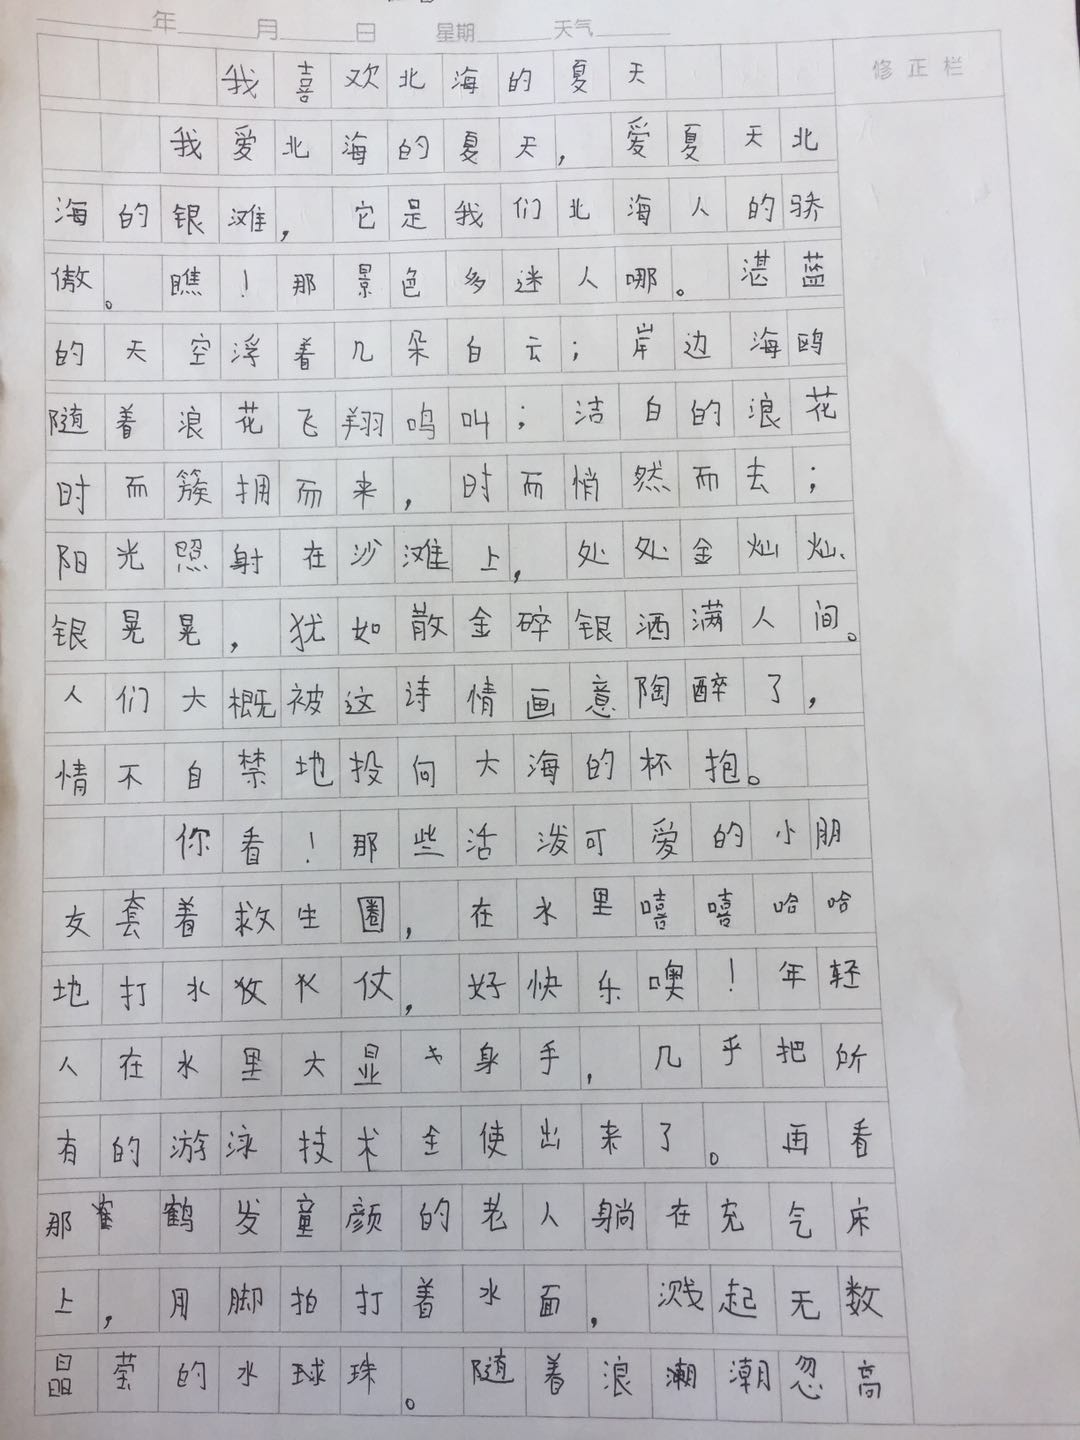 年 月 日 星期 天气
修正栏
我喜欢北海的夏天
我爱北海的夏天，爱夏天北
海的银滩，它是我们北海人的骄
傲。瞧！那景色多迷人哪。湛蓝
的天空浮着几朵白云；岸边海鸥
随着浪花飞翔鸣叫；洁白的浪花
时而簇拥而来，时而悄然而去；
阳光照射在沙滩上，处处金灿灿、
银晃晃，犹如散金碎银洒满人间。
人们大概被这诗情画意陶醉了，
情不自禁地投向大海的怀抱。
你看！那些活泼可爱的小朋
友套着救生圈，在水里嘻嘻哈哈
地打水仗，好快乐噢！年轻
人在水里大显身手，几乎把所
有的游泳技术全使出来了。再看
那鹤发童颜的老人躺在充气床
上，用脚拍打着水面，溅起无数
晶莹的水球珠。随着浪潮潮忽高